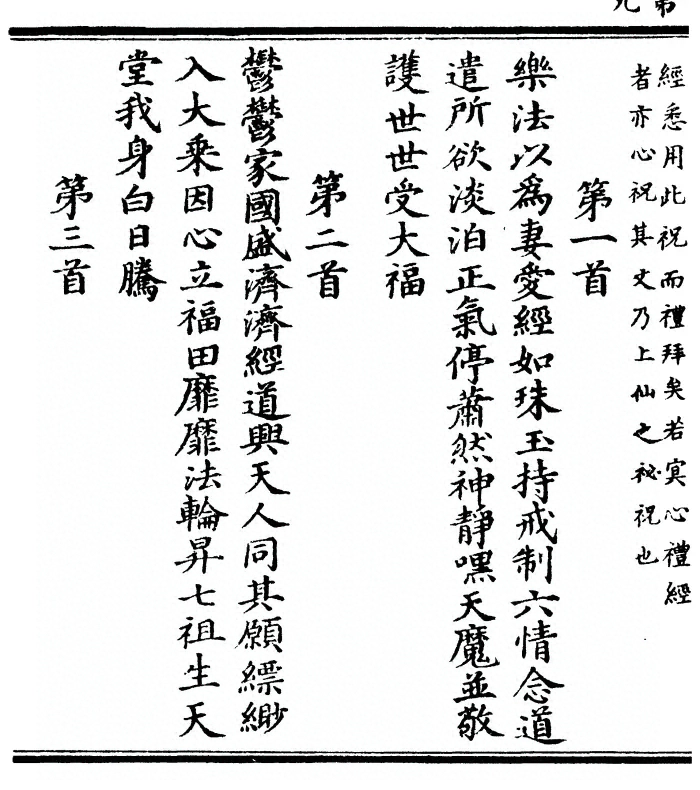 經悉用此祝而禮拜矣若冥心禮經
者亦心祝其文乃上仙之祕祝也
第一首
樂法以為妻愛經如珠玉持戒制六情念道
遣所欲淡泊正氣停蕭然神靜嘿天魔並敬
護世世受大福
第二首
鬱鬱家國盛濟濟經道興天人同其願縹緲
入大乘因心立福田靡靡法輪昇七祖生天
堂我身白日騰
第三首